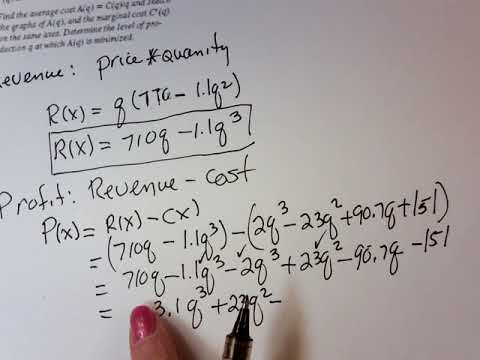 Find the average cost A(q) = C(q)/q and sketch
the graphs of A(q), and the marginal cost C'(q)
on the same axes. Determine the level of pro-
duction q at which A(q) is minimized.
Revenue: price * quanity
R(x) = q(770 - 1.1q²)
R(x) = 710q - 1.1q³
Profit: Revenue - cost
P(x) = R(x) - C(x)
= (710q - 1.1q³) - (2q³ - 23q² + 90.7q + 151)
= 710q - 1.1q³ - 2q³ + 23q² - 90.7q - 151
= 3.1q³ + 23q² -